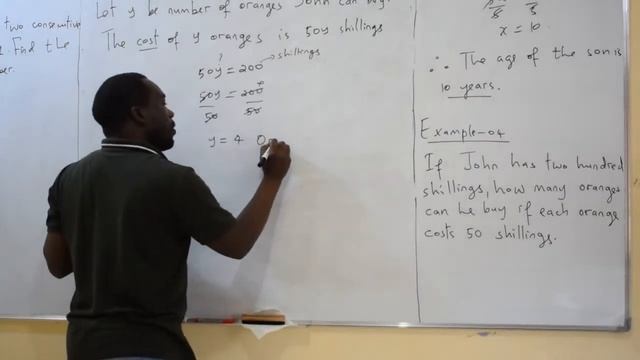 two consecutive
Find the
Let y be number of oranges John can buy.
The cost of y oranges is 50y shillings
50y = 200 → shillings
50y = 200
50 50
y = 4 O
x = 10
∴ The age of the son is
10 years.
Example-04
If John has two hundred
shillings, how many oranges
can he buy if each orange
costs 50 shillings.